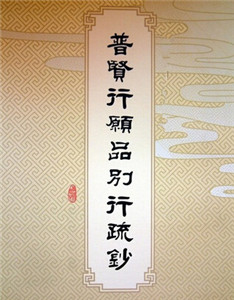 普賢行願品別行疏鈔